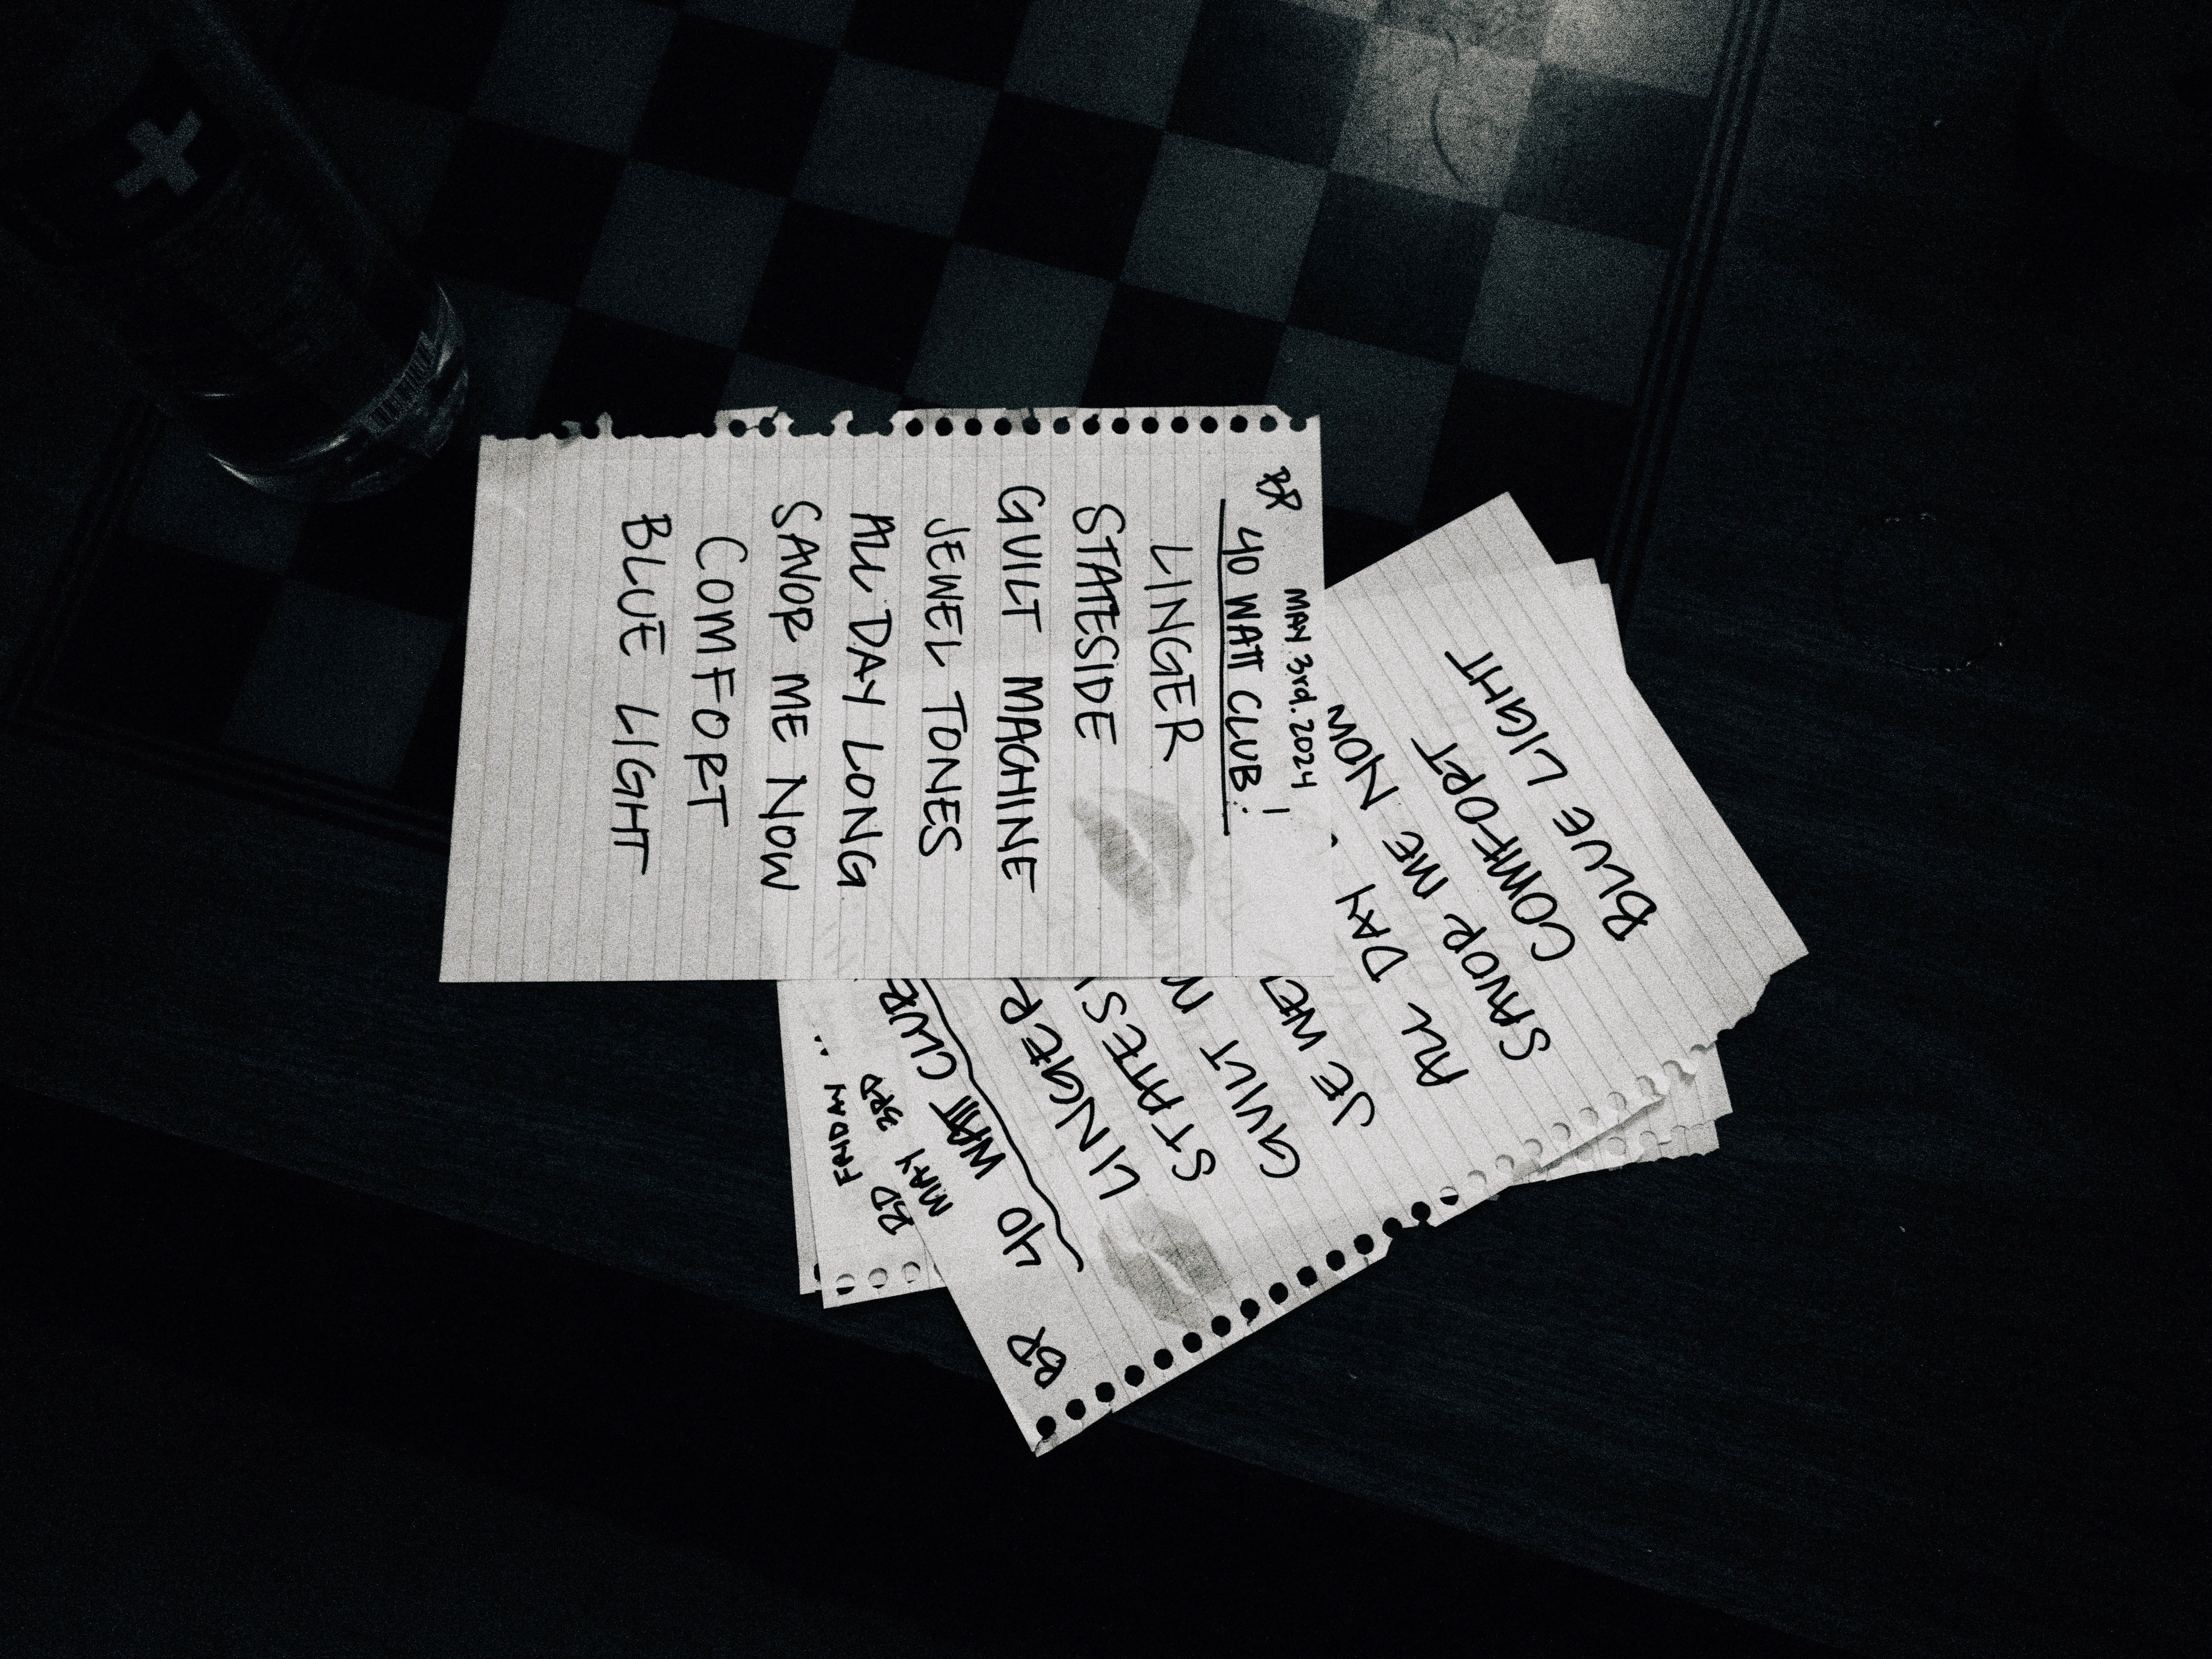 BR
MAY 3rd. 2024
40 WATT CLUB!
LINGER
STATESIDE
GUILT MACHINE
JEWEL TONES
ALL DAY LONG
SAVOR ME NOW
COMFORT
BLUE LIGHT
BR
40 WATT CLUB
LINGER
STATES
GUILT M
JEWE
ALL DAY
SAVOR ME NOW
COMFORT
BLUE LIGHT
FRIDAY
MAY 3RD